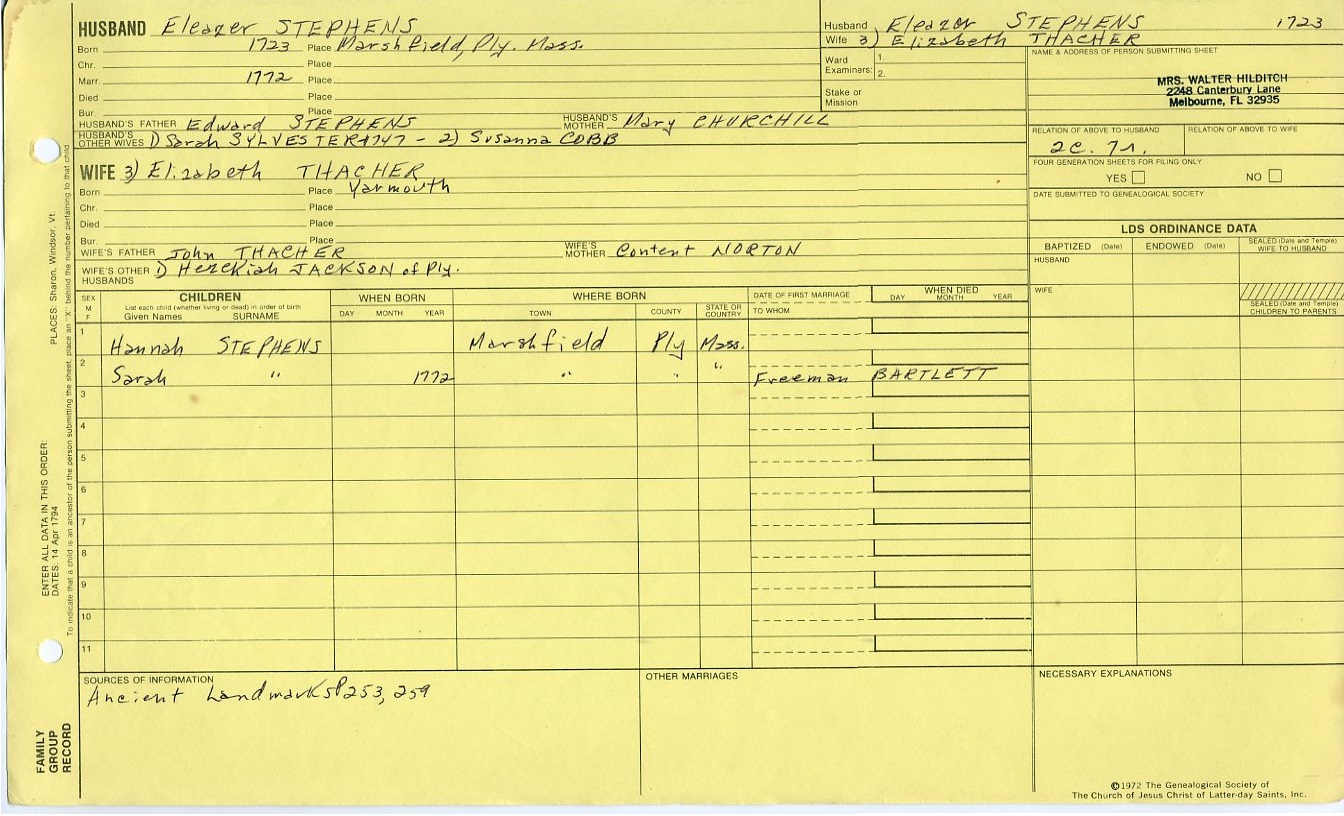 HUSBAND Eleazer STEPHENS
Born 1723 Place Marshfield Ply. Mass.
Chr. Place
Marr. 1772 Place
Died Place
Bur. Place
HUSBAND'S FATHER Edward STEPHENS HUSBAND'S MOTHER Mary CHURCHILL
HUSBAND'S OTHER WIVES 1) Sarah SYLVESTER 1747 - 2) Susanna COBB
WIFE 3) Elizabeth THACHER
Born Place Yarmouth
Chr. Place
Died Place
Bur. Place
WIFE'S FATHER John THACHER WIFE'S MOTHER Content NORTON
WIFE'S OTHER HUSBANDS 1) Hezekiah JACKSON of Ply.
Husband Eleazor STEPHENS 1723
Wife 3) Elizabeth THACHER
Ward Examiners: 1.
2.
Stake or Mission
NAME & ADDRESS OF PERSON SUBMITTING SHEET
MRS. WALTER HILDITCH
2248 Canterbury Lane
Melbourne, FL 32935
RELATION OF ABOVE TO HUSBAND RELATION OF ABOVE TO WIFE
2c. 7r.
FOUR GENERATION SHEETS FOR FILING ONLY
YES NO
DATE SUBMITTED TO GENEALOGICAL SOCIETY
LDS ORDINANCE DATA
BAPTIZED (Date) ENDOWED (Date) SEALED (Date and Temple) WIFE TO HUSBAND
HUSBAND
WIFE
SEALED (Date and Temple) CHILDREN TO PARENTS
SEX M F CHILDREN WHEN BORN WHERE BORN DATE OF FIRST MARRIAGE WHEN DIED
List each child (whether living or dead) in order of birth
Given Names SURNAME DAY MONTH YEAR TOWN COUNTY STATE OR COUNTRY TO WHOM DAY MONTH YEAR
1 Hannah STEPHENS Marshfield Ply Mass.
2 Sarah " 1772 " " " Freeman BARTLETT
3
4
5
6
7
8
9
10
11
SOURCES OF INFORMATION
Ancient Landmarks P253, 259
OTHER MARRIAGES
NECESSARY EXPLANATIONS
©1972 The Genealogical Society of
The Church of Jesus Christ of Latter-day Saints, Inc.
ENTER ALL DATA IN THIS ORDER:
DATES: 14 Apr 1794 PLACES: Sharon, Windsor, Vt.
To indicate that a child is an ancestor of the person submitting the sheet, place an "X" behind the number pertaining to that child
FAMILY
GROUP
RECORD